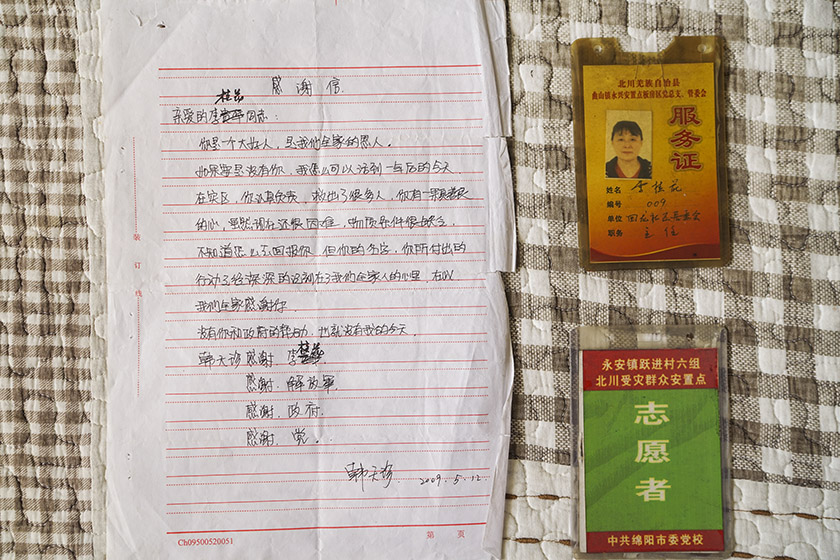 感谢信
桂花
亲爱的李同志：
你是一个大好人，是我们全家的恩人。
如果当里没有你，我怎么可以活到一年后的今天
在灾区，你认真负责，救出了很多人，你有一颗善良
的心，虽然现在还很困难，物质条件很缺乏，
不知道怎么去回报你，但你的名字，你所付出的
行动已经深深的记刻在了我们全家人的心里，在此
我们全家感谢你，
没有你和政府的帮助，也就没有我的今天，
韩天珍感谢．李桂花
感谢．解放军．
感谢．政府．
感谢．党．
韩天珍
2009.5.12.
装订线
Ch09500520051
第 页
北川羌族自治县
曲山镇永兴安置点板房区党总支、管委会
服务证
姓名 李桂花
编号 009
单位 回龙社区居委会
职务 主任
永安镇跃进村六组
北川受灾群众安置点
志愿者
中共绵阳市委党校